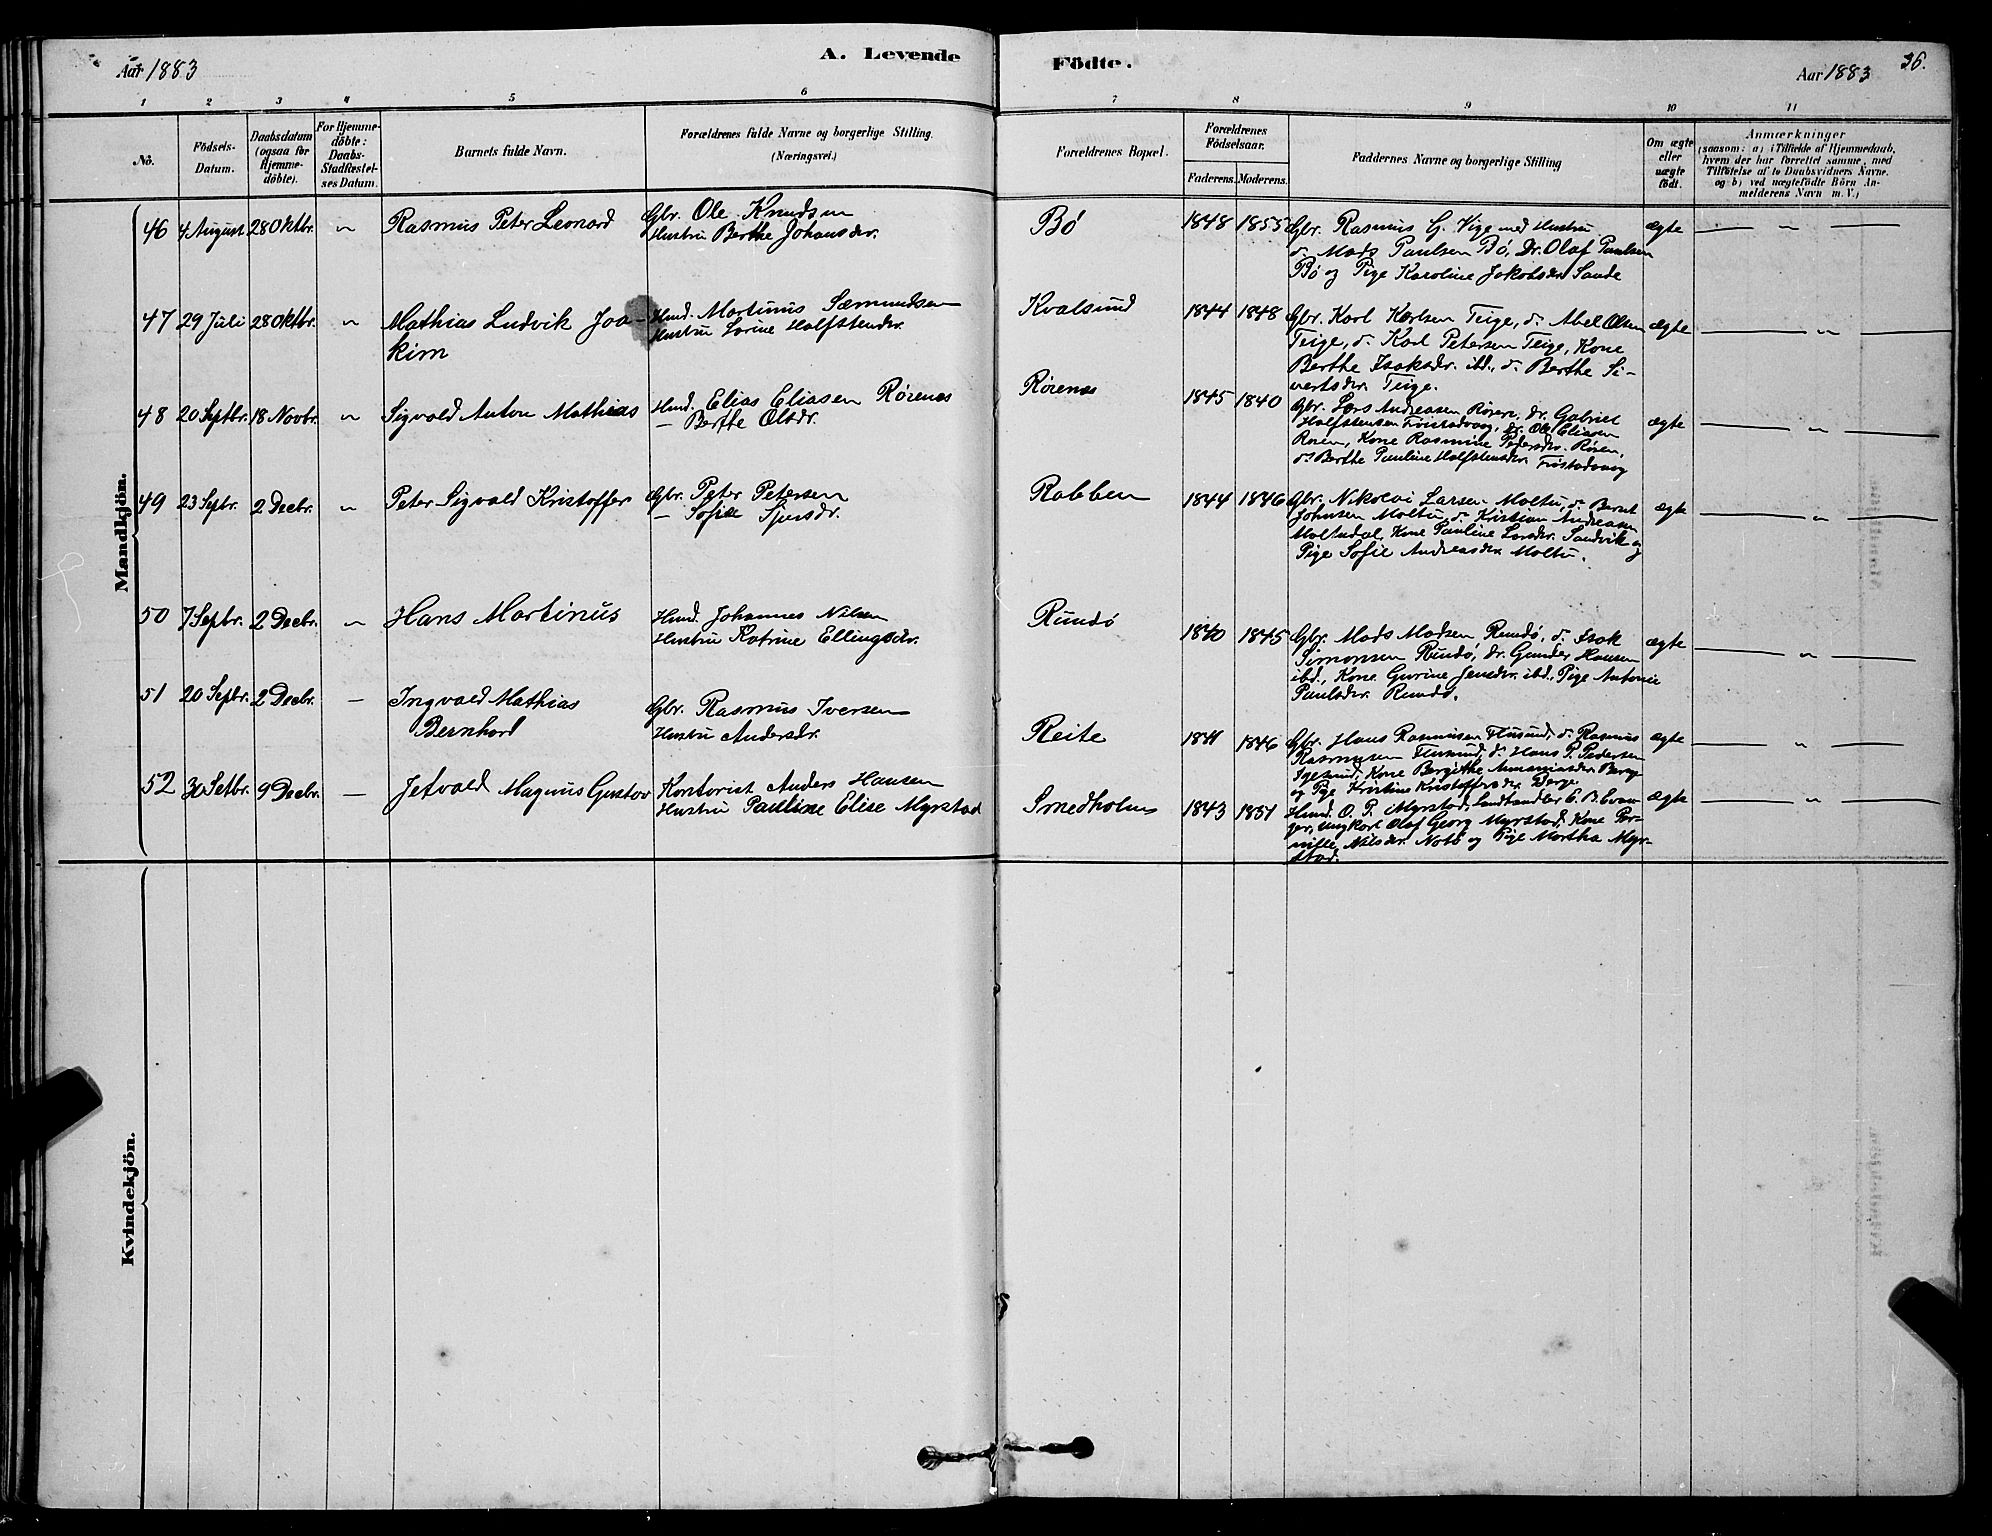 Aar 1883
A. Levende
Födte.
Aar 1883
36.
1 2 3 4 5 6 7 8 9 10 11
No.
Födsels-
Datum.
Daabsdatum
(ogsaa for
Hjemme-
döbte).
For Hjemme-
döbte:
Daabs-
Stadfæstel-
ses Datum.
Barnets fulde Navn.
Forældrenes fulde Navne og borgerlige Stilling.
(Næringsvei.)
Forældrenes Bopæl.
Forældrenes
Födselsaar.
Faderens. Moderens.
Faddernes Navne og borgerlige Stilling
Om ægte
eller
uægte
födt.
Anmærkninger
(saasom: a) i Tilfælde af Hjemmedaab,
hvem der har forrettet samme, med
Tilföielse af to Daabsvidners Navne,
og b) ved uægtefödte Börn An-
melderens Navn m. V.)
Mandkjön.
46 4 August 28 Oktbr. " Rasmus Peter Leonard
Gbr. Ole Knudsen
Hustru Berthe Johansdr.
Bø
1848 1855
Gbr. Rasmus G. Vige med Hustru
d. Mads Paulsen Bø, Dr. Olaf Paulsen
Bø og Pige Karoline Jakobsdr. Sande
ægte — " —
47 29 Juli 28 Oktbr. " Mathias Ludvik Joa-
kim
Hmd. Martinus Sæmundsen
Hustru Lorine Halfstensdr.
Kvalsund
1844 1848
Gbr. Karl Karlsen Teige, d. Abel Olsen
Teige, d. Karl Petersen Teige, Kone
Berthe Isaksdr. ibd., d. Berthe Si-
vertsdr. Teige.
ægte — " —
48 20 Septbr. 18 Novbr. " Sigvald Anton Mathias
Hmd. Elias Eliasen Rørenes
— Berthe Olsdr.
Rørenes
1845 1840
Gbr. Lars Andreasen Røren, dr. Gabriel
Halfstensen Fristadvaag, dr. Ole Eliasen
Røren, Kone Rasmine Pedersdr. Røren,
d. Berthe Pauline Halfstensdr. Fristadvaag
ægte — " —
49 23 Septr. 2 Decbr. " Peter Sigvald Kristoffer
Gbr. Peter Petersen
— Sofie Sjursdr.
Robben
1844 1846
Gbr. Nikolai Larsen Moltu, d. Bernt
Johnsen Moltu, d. Kristian Andreasen
Moltudal, Kone Pauline Larsdr. Sandvik og
Pige Sofie Andreasdr. Moltu.
ægte — " —
50 7 Septbr. 2 Decbr. " Hans Martinus
Hmd. Johannes Nilsen
Hustru Katrine Ellingsdr.
Rundø
1840 1845
Gbr. Mads Madsen Rundø, d. Isak
Simonsen Rundø, dr. Gunder Hansen
ibd., Kone Gurine Jensdr. ibd., Pige Antonie
Paulsdr. Rundø.
ægte — " —
51 20 Septbr. 2 Decbr. — Ingvald Mathias
Bernhard
Gbr. Rasmus Iversen
Hustru Andersdr.
Reite
1841 1846
Gbr. Hans Rasmussen Flusund, d. Rasmus
Rasmussen Flusund, d. Hans P. Pedersen
Igesund, Kone Bergithe Ananiasdr. Berge
og Pige Kristine Kristoffersdr. Berge.
ægte — " —
52 30 Setbr. 9 Decbr. — Jetvald Magnus Gustav
Kontorist Anders Hansen
Hustru Pauline Elise Myrstad
Smedholmen
1843 1851
Hmd. O. P. Myrstad, Landhandler E. B. Evan-
ger, Ungkarl Olaf Georg Myrstad, Kone Per-
nille Nilsdr. Notø og Pige Martha Myr-
stad.
ægte — " —
Kvindekjön.